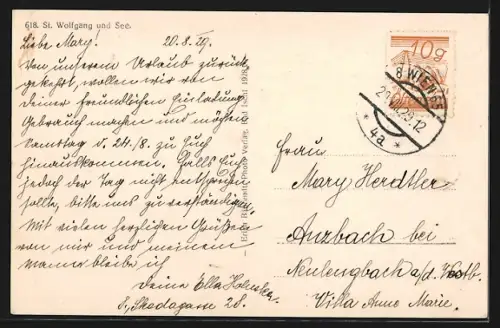 618. St. Wolfgang und See.
Liebe Mary! 20.8.29.
Von unserem Urlaub zurück-
gekehrt, wollen wir von
deiner freundlichen Einladung
Gebrauch machen und möchten
Samstag d. 24./8. zu Euch
hinauskommen. Falls Euch
jedoch der Tag nicht entsprechen
sollte, bitte uns zu verständigen.
Mit vielen herzlichen Grüßen
von mir und meinem
Manne bleibe ich
Deine Ella
8, Skodagasse 28.
Photo Verlag, Ischl 1928
10g
8 WIEN
29-12
* 4a *
Frau
Mary Herdtler
Anzbach bei
Neulengbach a/d. Westb.
Villa Anne Marie.